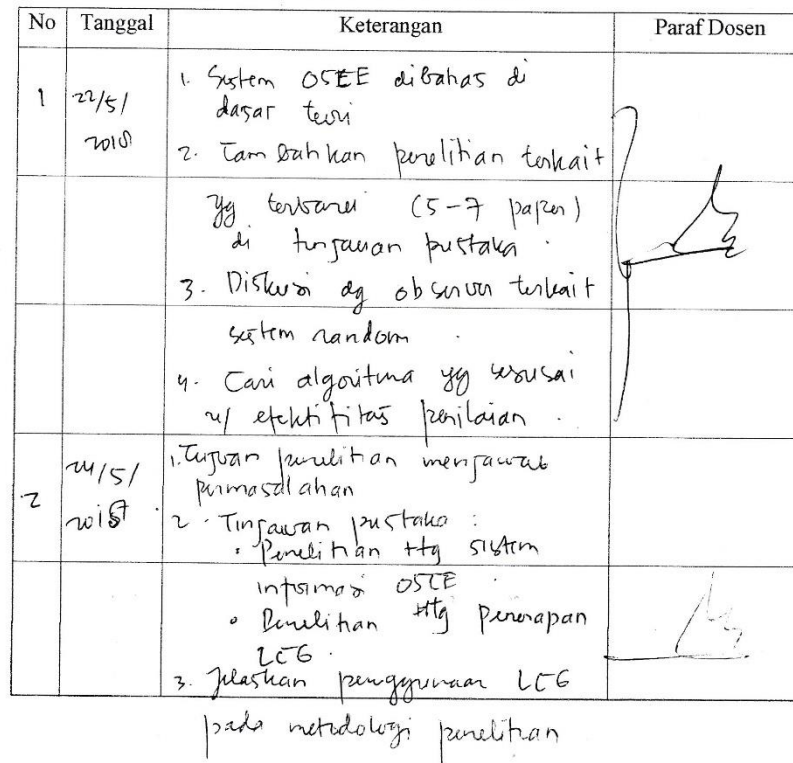 No Tanggal Keterangan Paraf Dosen
1 22/5/ 1. Sistem OSCE dibahas di
2018 dasar teori
2. Tambahkan penelitian terkait
yg terbaru (5-7 paper)
di tinjauan pustaka.
3. Diskusi dg observer terkait
sistem random.
4. Cari algoritma yg sesuai
u/ efektifitas penilaian.
2 24/5/ 1. Tujuan penelitian menjawab
permasalahan
2018 2. Tinjauan pustaka:
• Penelitian ttg sistem
informasi OSCE.
• Penelitian ttg penerapan
LCG.
3. Jelaskan penggunaan LCG
pada metodologi penelitian